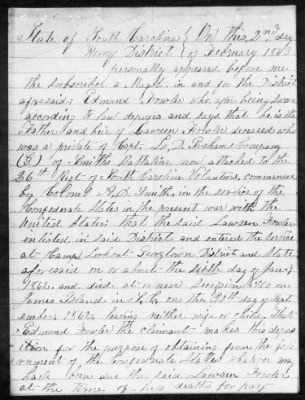 State of South Carolina } On this 2nd day
Horry District } of February 1863
personally appeared before me
the subscriber a Magst. in and for the District
aforesaid; Edmund Fowler who after being sworn
according to law deposes and says that he is the
Father and heir of Lawson Fowler deceased who
was a private of Capt. S. D. Grahams Company
of Smiths Battalion now attached to the
26th Regt of South Carolina Volunteers, commanded
by Colonel A. D. Smith, in the service of the
Confederate States in the present war with the
United States: that the said Lawson Fowler
enlisted in said District and entered the service
at Camp Lookout Georgetown District and State
aforesaid on or about the sixth day of Jany
1862 and died at or near Secession ville on
James Island in S. C. on the day of Sept
ember 1862, leaving neither wife or child, That
Edmund Fowler the claimant makes this depos
ition for the purpose of obtaining from the
ernment of the Confederate States whatever may
have been due the said Lawson Fowler
at the time of his death for pay